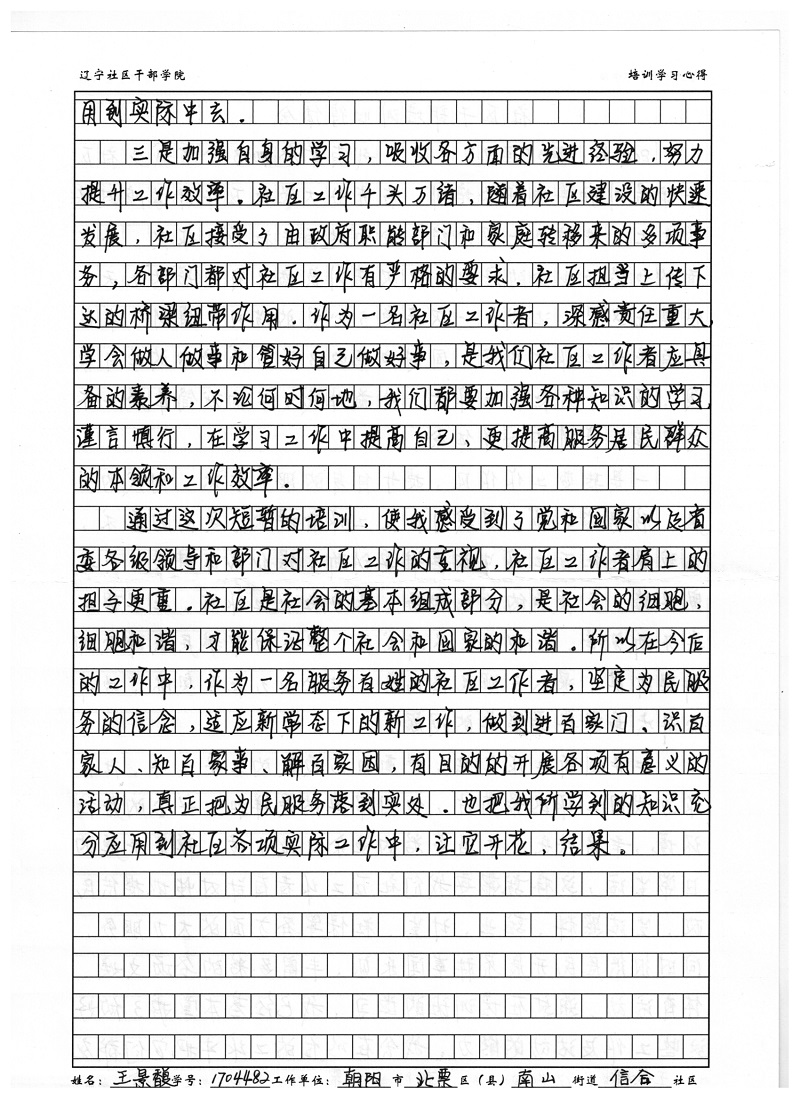 辽宁社区干部学院 培训学习心得
用到实际中去.
三是加强自身的学习,吸收各方面的先进经验,努力
提升工作效率.社区工作千头万绪,随着社区建设的快速
发展,社区接受了由政府职能部门和家庭转移来的多项事
务,各部门都对社区工作有严格的要求.社区担当上传下
达的桥梁纽带作用.作为一名社区工作者,深感责任重大,
学会做人做事和管好自己做好事,是我们社区工作者应具
备的素养,不论何时何地,我们都要加强各种知识的学习,
谨言慎行,在学习工作中提高自己,更提高服务居民群众
的本领和工作效率.
通过这次短暂的培训,使我感受到了党和国家以及省
委各级领导和部门对社区工作的重视,社区工作者肩上的
担子更重.社区是社会的基本组成部分,是社会的细胞,
细胞和谐,才能保证整个社会和国家的和谐.所以在今后
的工作中,作为一名服务百姓的社区工作者,坚定为民服
务的信念,适应新常态下的新工作,做到进百家门、识百
家人、知百家事、解百家困,有目的的开展各项有意义的
活动,真正把为民服务落到实处.也把我所学到的知识充
分应用到社区各项实际工作中,让它开花,结果。
姓名:王景馥学号:1704482工作单位:朝阳市北票区(县)南山街道信合社区